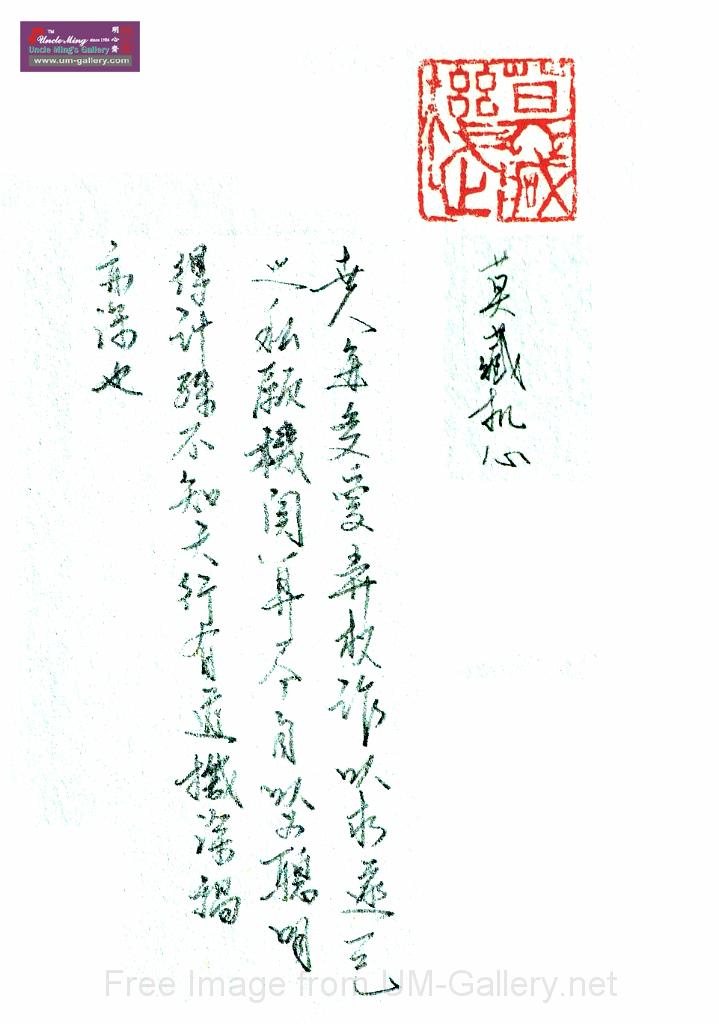 TM
明心齋
Uncle Ming since 1984
Uncle Ming's Gallery
www.um-gallery.com
莫藏機心
莫藏机心
世人每多愛弄权詐以求遂一己
之私願機関算尽自以為聰明
得计殊不知天行有道機深禍
亦深也
Free Image from UM-Gallery.net